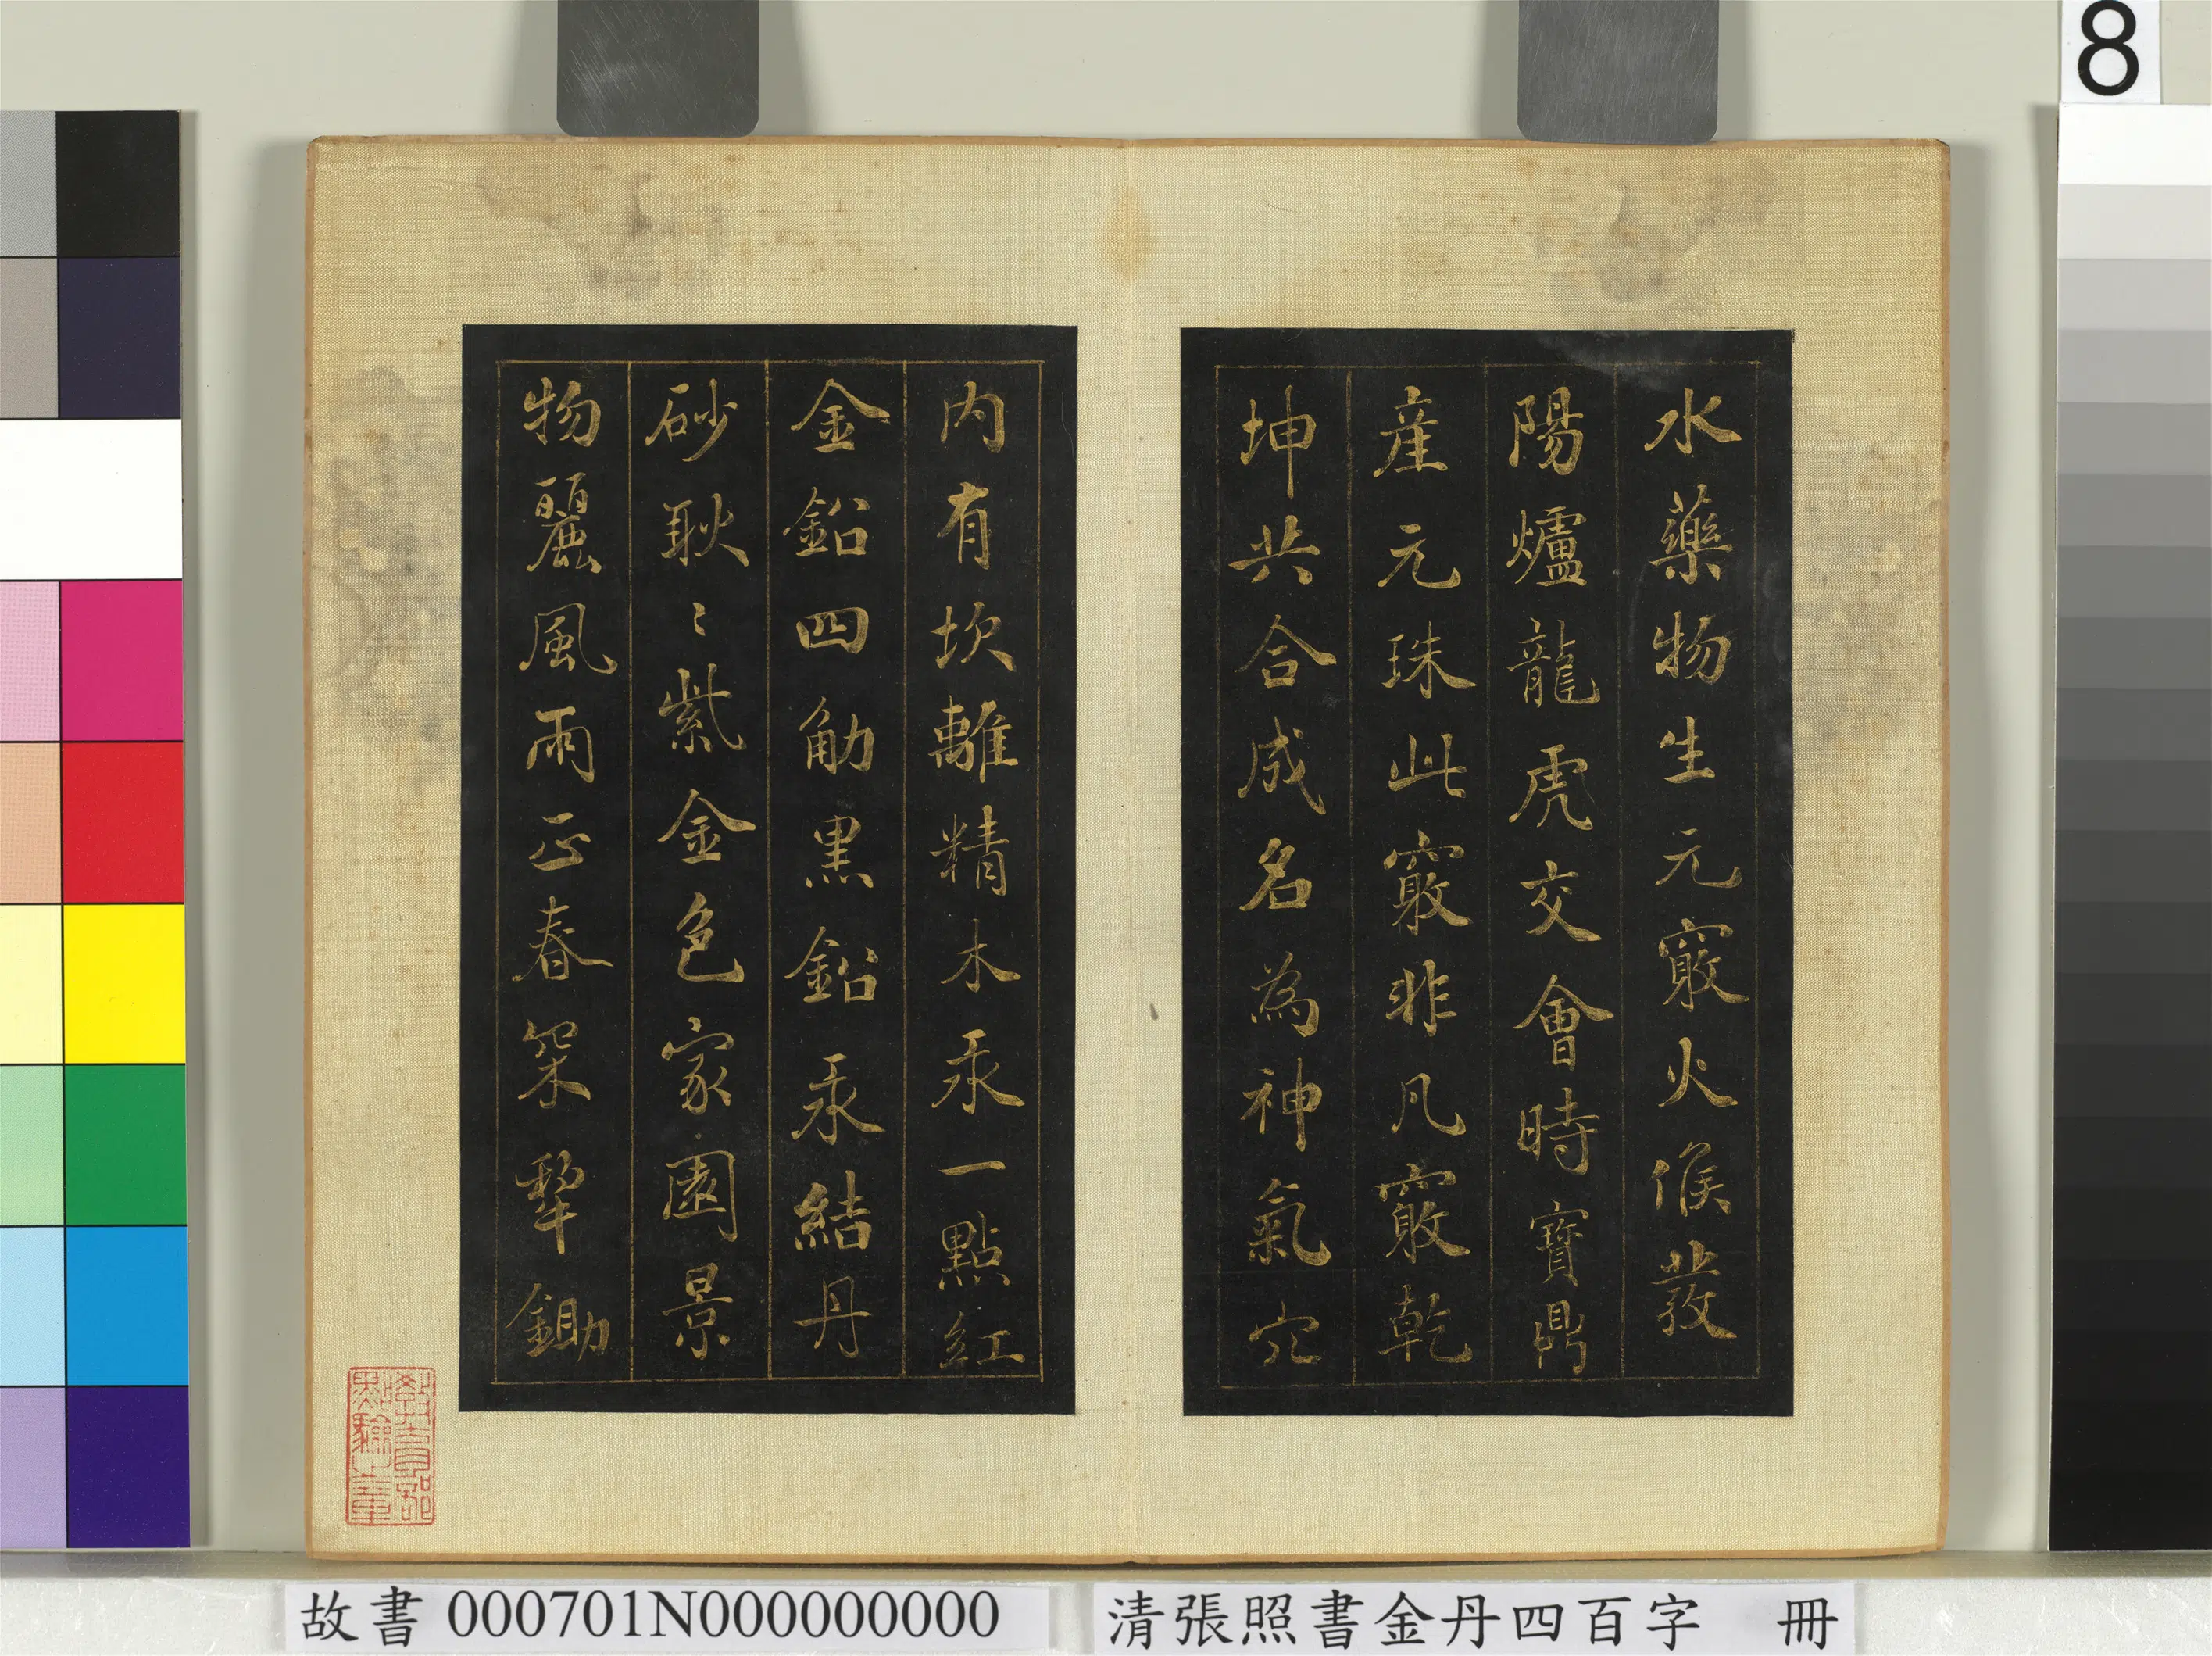 8
水藥物生元竅火候發
陽爐龍虎交會時寶鼎
産元珠此竅非凡竅乾
坤共合成名為神氣穴
內有坎離精木汞一點紅
金鉛四觔黑鉛汞結丹
砂耿〻紫金色家園景
物麗風雨正春罙犂鋤
教育部
點驗之章
故書 000701N000000000
清張照書金丹四百字 冊